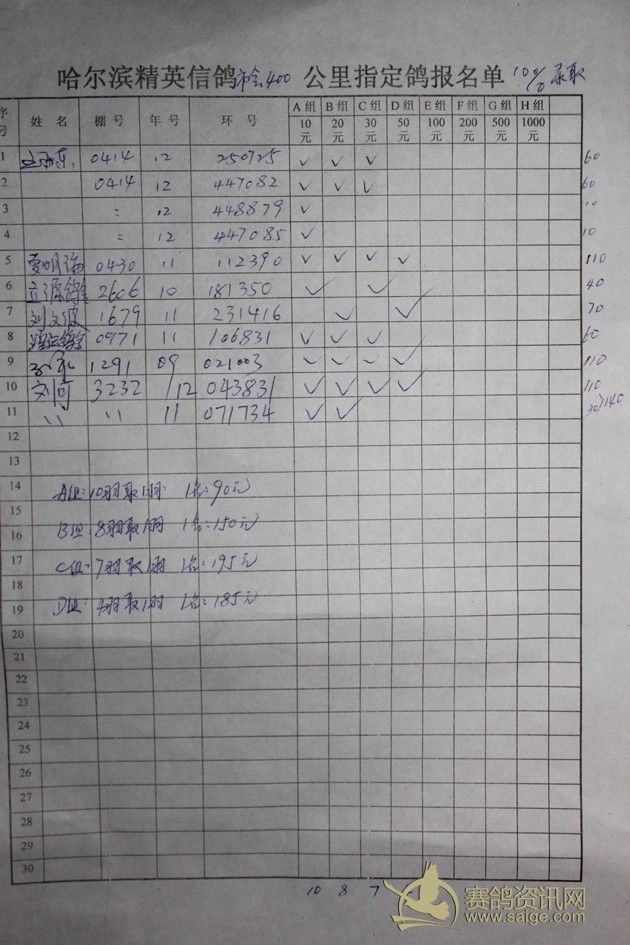 哈尔滨精英信鸽市会400 公里指定鸽报名单 10% 录取
序号 姓名 棚号 年号 环号 A组 10元 B组 20元 C组 30元 D组 50元 E组 100元 F组 200元 G组 500元 H组 1000元
1 0414 12 250725 ✓ ✓ ✓ 60
2 0414 12 447082 ✓ ✓ ✓ 60
3 : 12 448879 ✓ 10
4 : 12 447085 ✓ 10
5 0430 11 112390 ✓ ✓ ✓ ✓ 110
6 2606 10 181350 ✓ ✓ 40
7 刘文波 1679 11 231416 ✓ ✓ 70
8 0971 11 106831 ✓ ✓ ✓ 60
9 1291 09 021003 ✓ ✓ ✓ ✓ 110
10 刘可 3232 12 043831 ✓ ✓ ✓ ✓ 110
11 〃 〃 11 071734 ✓ ✓ 30 140
12
13
14 A组:10羽取1羽 1名:90元
15
16 B组:8羽取1羽 1名:150元
17 C组:7羽取1羽 1名:195元
18
19 D组:4羽取1羽 1名:185元
20
21
22
23
24
25
26
27
28
29
30
10 8 7
赛鸽资讯网
www.saige.com